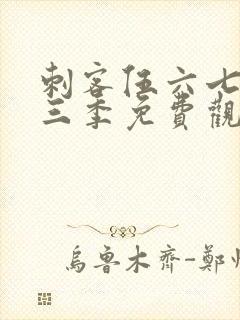 刺客伍六七
三季免費觀
烏魯木齊-鄭州